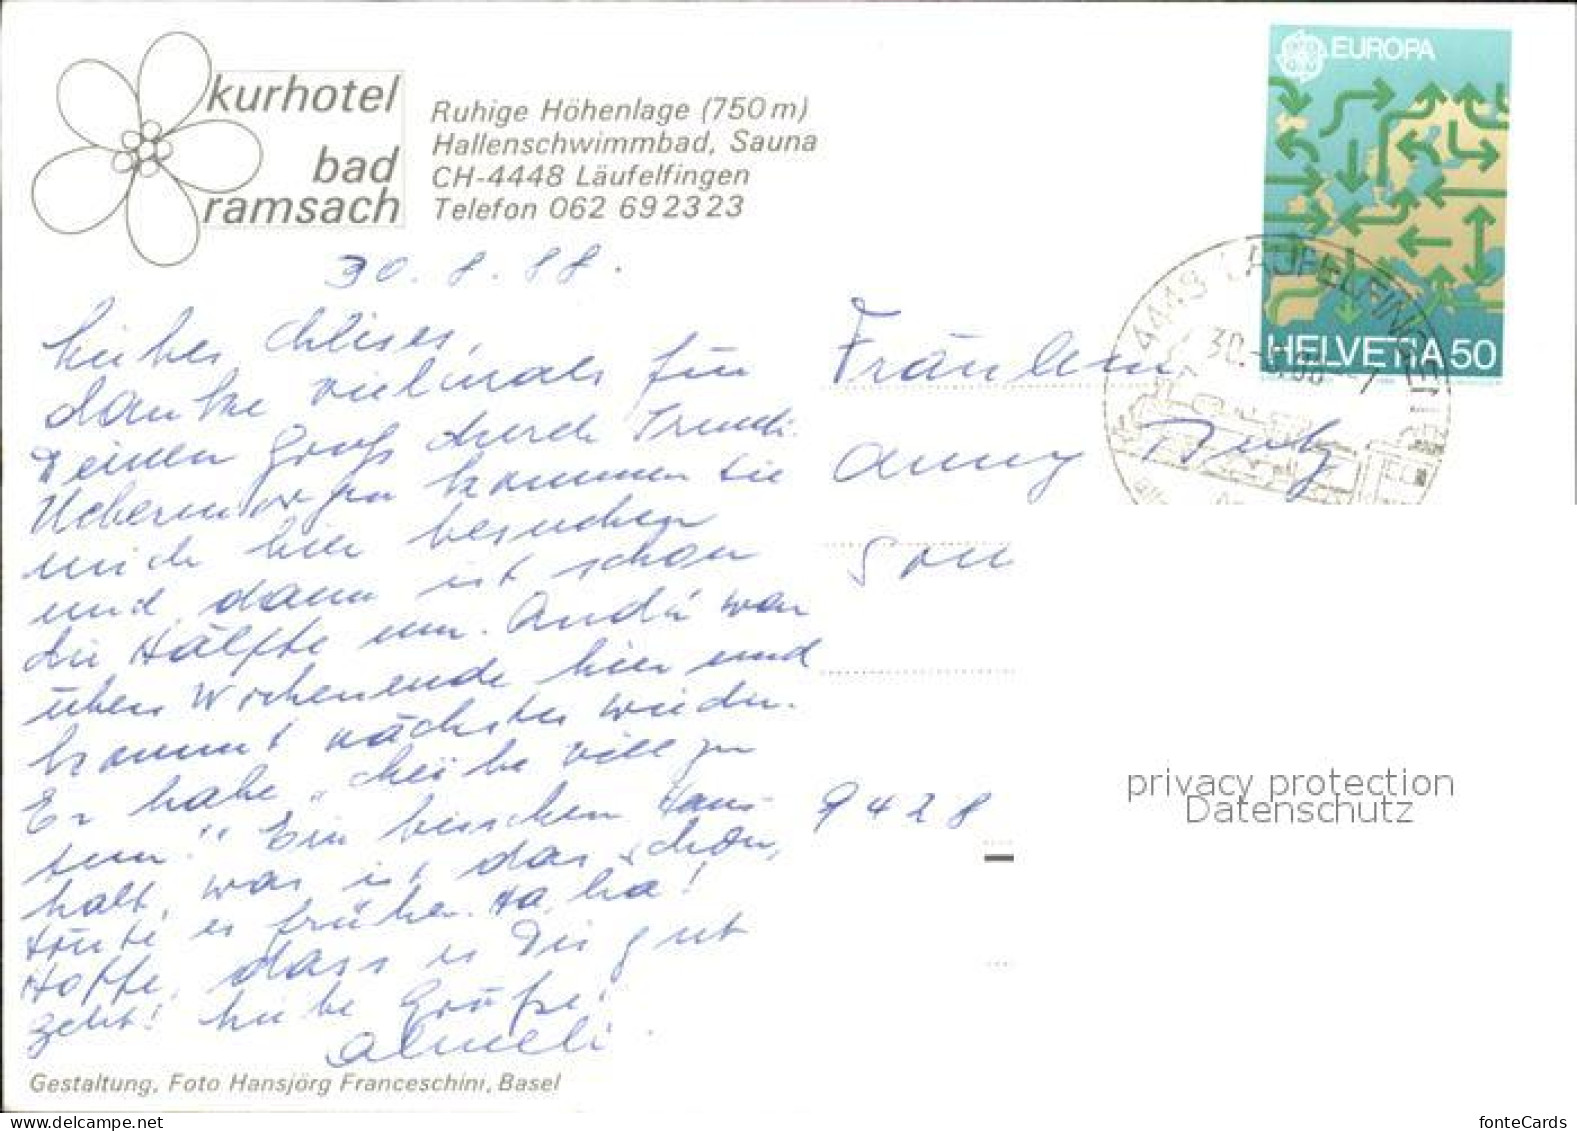 kurhotel
bad
ramsach
Ruhige Höhenlage (750 m)
Hallenschwimmbad, Sauna
CH-4448 Läufelfingen
Telefon 062 69 23 23
EUROPA
HELVETIA 50
4448 LÄUFELFINGEN
30.8.88.
danke vielmals für
Deinen Gruss durch Trudi.
Uebermorgen kommen Sie
mich hier besuchen
und dann ist schon
die Hälfte um. André war
übers Wochenende hier und
kommt nächstes wieder.
Er habe „cheibe vill zu
tun." Ein bisschen Haus-
halt, was ist das schon,
tönte es früher. Ha, ha!
Hoffe, dass es Dir gut
geht! Liebe Grüsse!
Fräulein
Anny
9428
Gestaltung, Foto Hansjörg Franceschini, Basel
privacy protection
Datenschutz
fonteCards